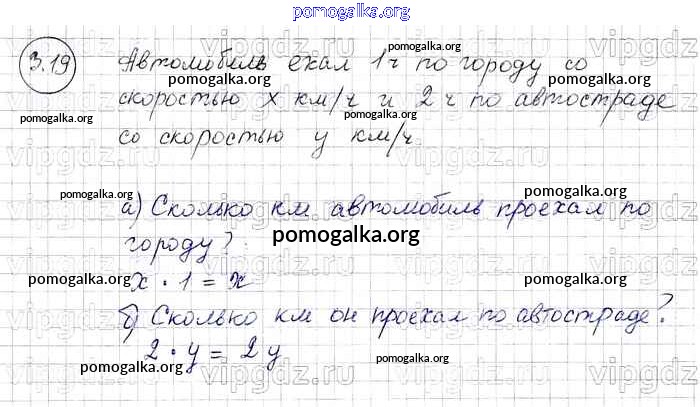 pomogalka.org
3.19
Автомобиль ехал 1 ч по городу со
pomogalka.org pomogalka.org
скоростью x км/ч и 2 ч по автостраде
pomogalka.org
со скоростью y км/ч.
pomogalka.org pomogalka.org
а) Сколько км автомобиль проехал по
городу?
pomogalka.org
x · 1 = x
pomogalka.org pomogalka.org
б) Сколько км он проехал по автостраде?
2 · y = 2y
pomogalka.org pomogalka.org
vipgdz.com